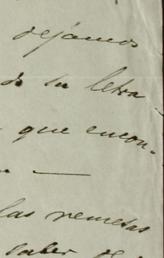 dejamos
su letra
que encon-
las remesas
saber